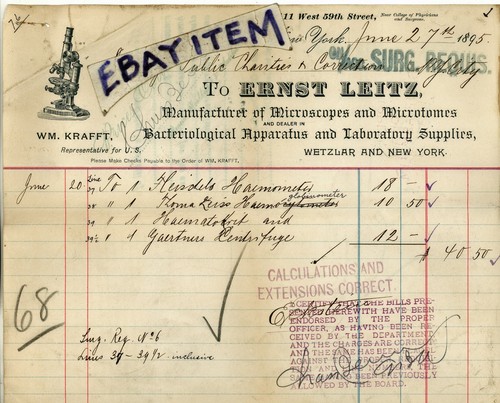 11 West 59th Street,
Near College of Physicians and Surgeons.
EBAY ITEM
York, June 27th 1895.
Public Charities & Correction
SURG. REQUIS.
To ERNST LEITZ,
Manufacturer of Microscopes and Microtomes
AND DEALER IN
Bacteriological Apparatus and Laboratory Supplies,
WETZLAR AND NEW YORK.
WM. KRAFFT,
Representative for U. S.
Please Make Checks Payable to the Order of WM. KRAFFT,
June 20 Line 37 To 1 Fleischls Haemometer 18 —
38 " 1 Thoma Zeiss Haemocytometer 10 50
39 " 1 Haematokrit and
39½ " 1 Gaertners Centrifuge 12 —
$ 40 50
CALCULATIONS AND
EXTENSIONS CORRECT.
68
I CERTIFY THAT THE BILLS PRE-
HEREWITH HAVE BEEN
ENDORSED BY THE PROPER
OFFICER, AS HAVING BEEN RE-
CEIVED BY THE DEPARTMENT
AND THE CHARGES ARE CORRECT
AND THE SAME HAS BEEN
PREVIOUSLY
ALLOWED BY THE BOARD.
Surg. Req. No 6
Lines 37 - 39½ inclusive